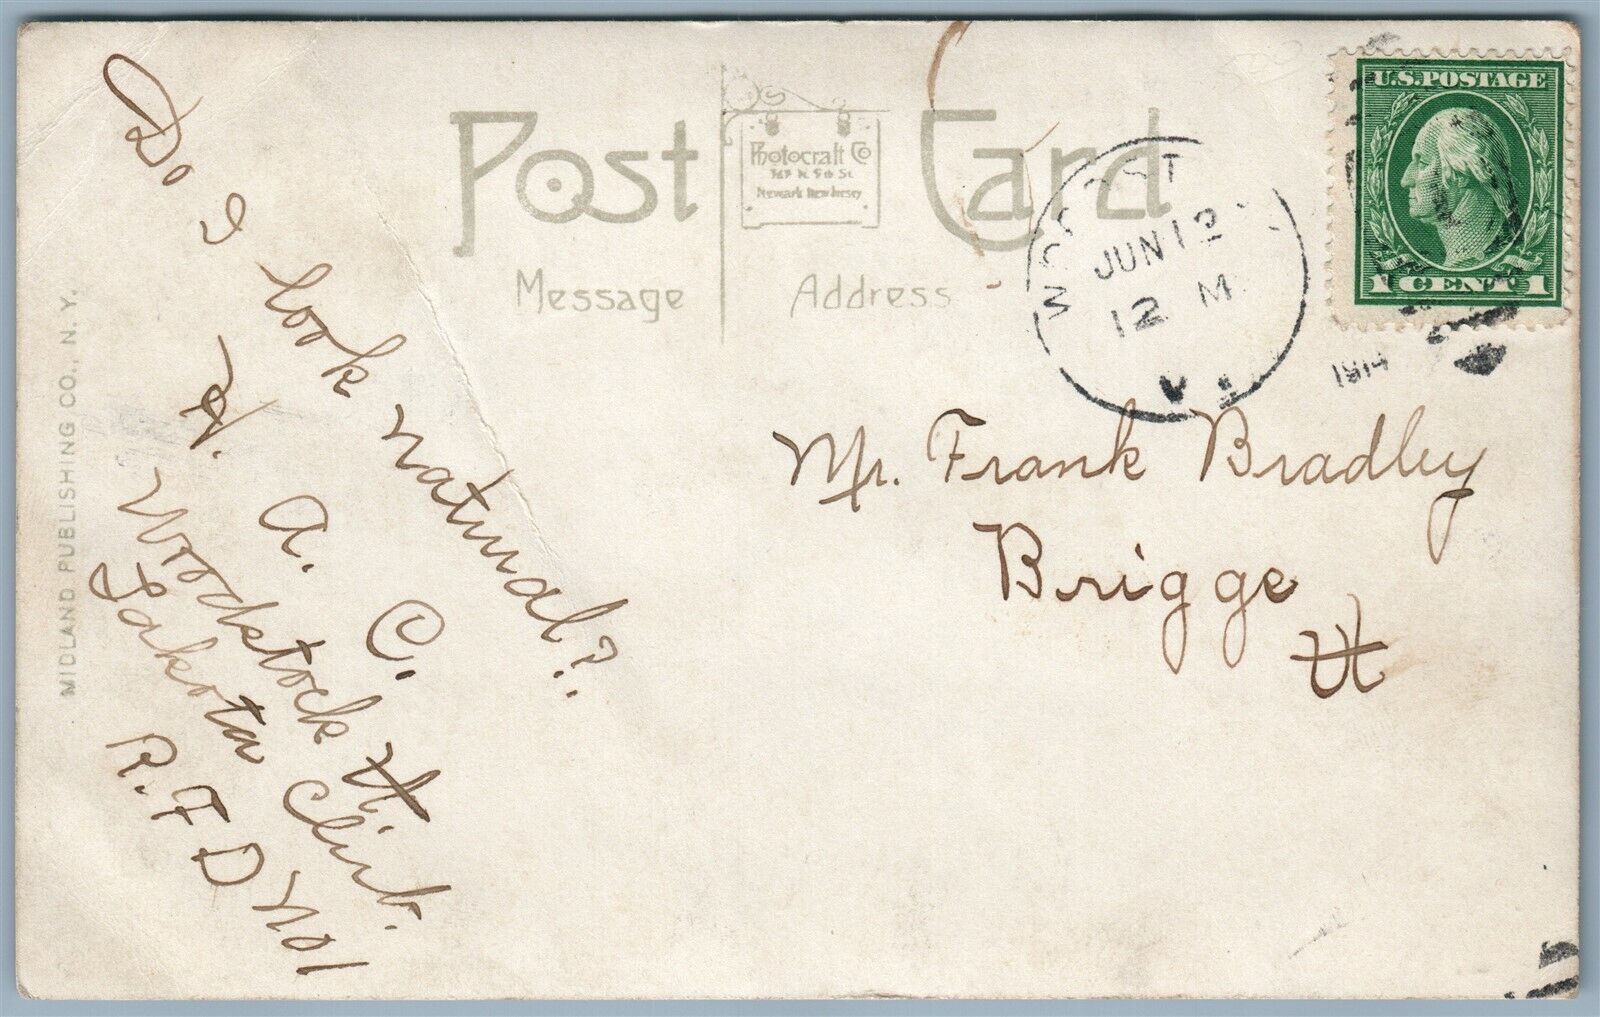 Do I look natural?
H. A. C.
Woodstock Vt.
Lakota Club.
R. F D No1
Post Card
Photocraft Co
N. 5th St
Newark New Jersey
Message
Address
JUN 12
12 M
VT
1914
U.S. POSTAGE
1 CENT 1
Mr. Frank Bradley
Brigge
Vt
MIDLAND PUBLISHING CO., N. Y.